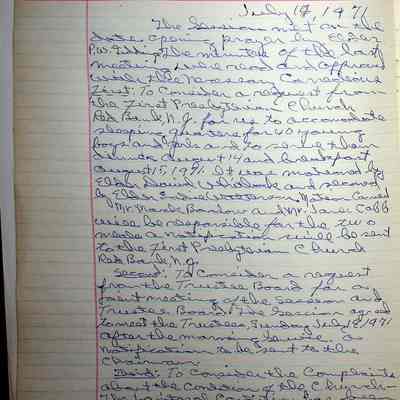 July 14 1971
The Session met on the
date, opening prayer by Elder
P.W. The minutes of the last
meeting were read and approved
with the necessary Corrections
First: To Consider a request from
the First Presbyterian Church
Red Bank, N.J. for us to accomodate
sleeping quarters for 40 young
boys and girls and to serve them
dinner August 14 and breakfast
August 15, 1971. It was motioned by
Elder David and second
by Elder Motion Carried
Mr. Frank and Mrs. Janie Cobb
will be responsible for the two
meals a notification will be sent
to the First Presbyterian Church
Red Bank, N.J.
Second: To Consider a request
from the Trustee Board for a
joint meeting of the Session and
Trustee Board. The Session agreed
to meet the Trustees, Sunday July 18, 1971
after the morning service. a
notification to be sent to the
Chairman.
Third: To Consider the Complaints
about the Condition of the Church
The has been